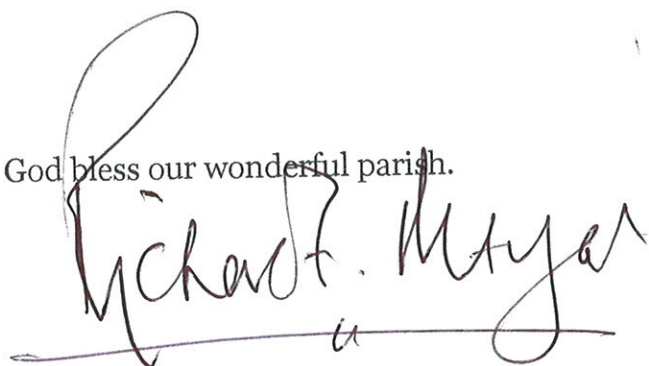 God bless our wonderful parish.
Richard F. M